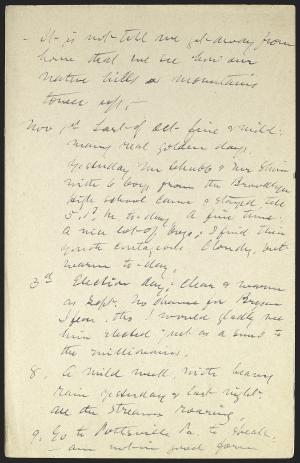 - It is not till we get away from
home that we see how our
native hills or mountains
tower up. -
Nov 1st Last of Oct fine & mild:
many real golden days.
Yesterday Mr Schubb & Mr
with 6 boys from the Brooklyn
high school came & stayed till
5.15 P.M. to-day. A fine time.
A nice lot of boys; I find their
youth contagious. Cloudy, but
warm to-day.
3rd Election day; clear & warm
as Sept. No chance for Bryan
I fear, tho I would gladly see
him elected just as a
the millionaires.
8, A mild week, with heavy
rain yesterday & last night.
all the streams roaring.
9, Go to Pottsville Pa. to speak.
- am not in good form